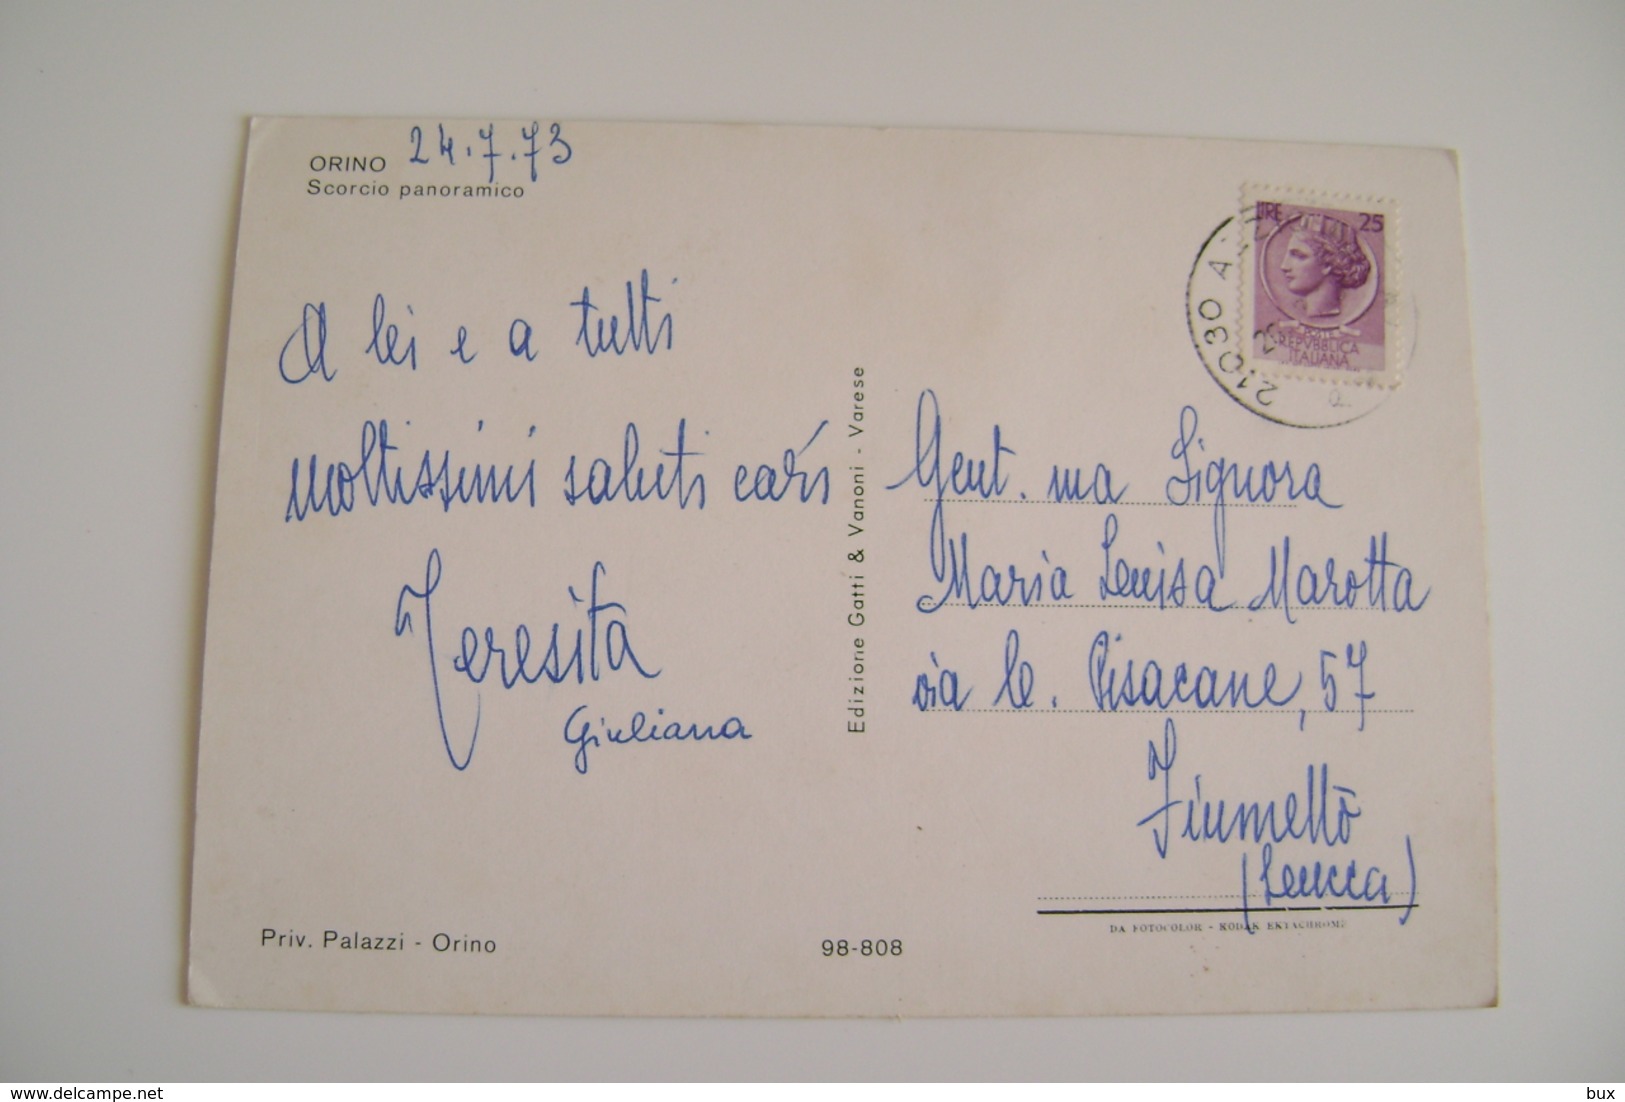 ORINO 24.7.73
Scorcio panoramico
A lei e a tutti
moltissimi saluti cari
Teresita
Giuliana
Priv. Palazzi - Orino
98-808
Edizione Gatti & Vanoni - Varese
LIRE 25
REPVBBLICA
ITALIANA
21030
Gent.ma Signora
Maria Luisa Marotta
via le. Pisacane, 57
Fiumetto
(Lucca)
DA FOTOCOLOR - KODAK EKTACHROME
bux